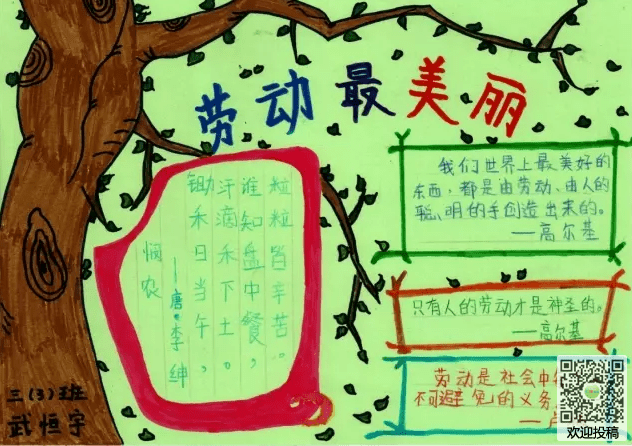 劳动最美丽
悯农
——唐·李绅
锄禾日当午，
汗滴禾下土。
谁知盘中餐，
粒粒皆辛苦。
我们世界上最美好的
东西，都是由劳动、由人的
聪明的手创造出来的。
——高尔基
只有人的劳动才是神圣的。
——高尔基
劳动是社会中
不可避免的义务
——卢
三(3)班
武恒宇
欢迎投稿